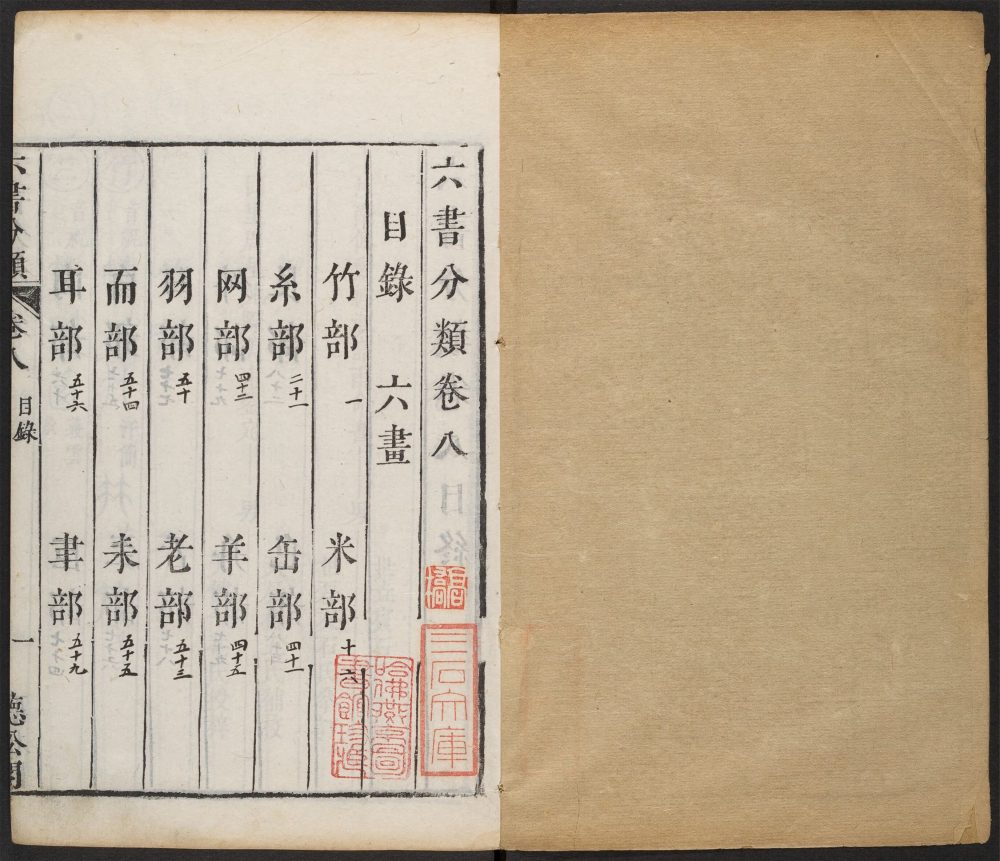 六書分類卷八
目錄　六畫
竹部 一　米部 十六
糸部 二十一　缶部 四十一
网部 四十三　羊部 四十五
羽部 五十　老部 五十三
而部 五十四　耒部 五十五
耳部 五十六　聿部 五十九
六書分類　卷八　目錄　一
三石文庫
哈佛燕京圖書館珍藏